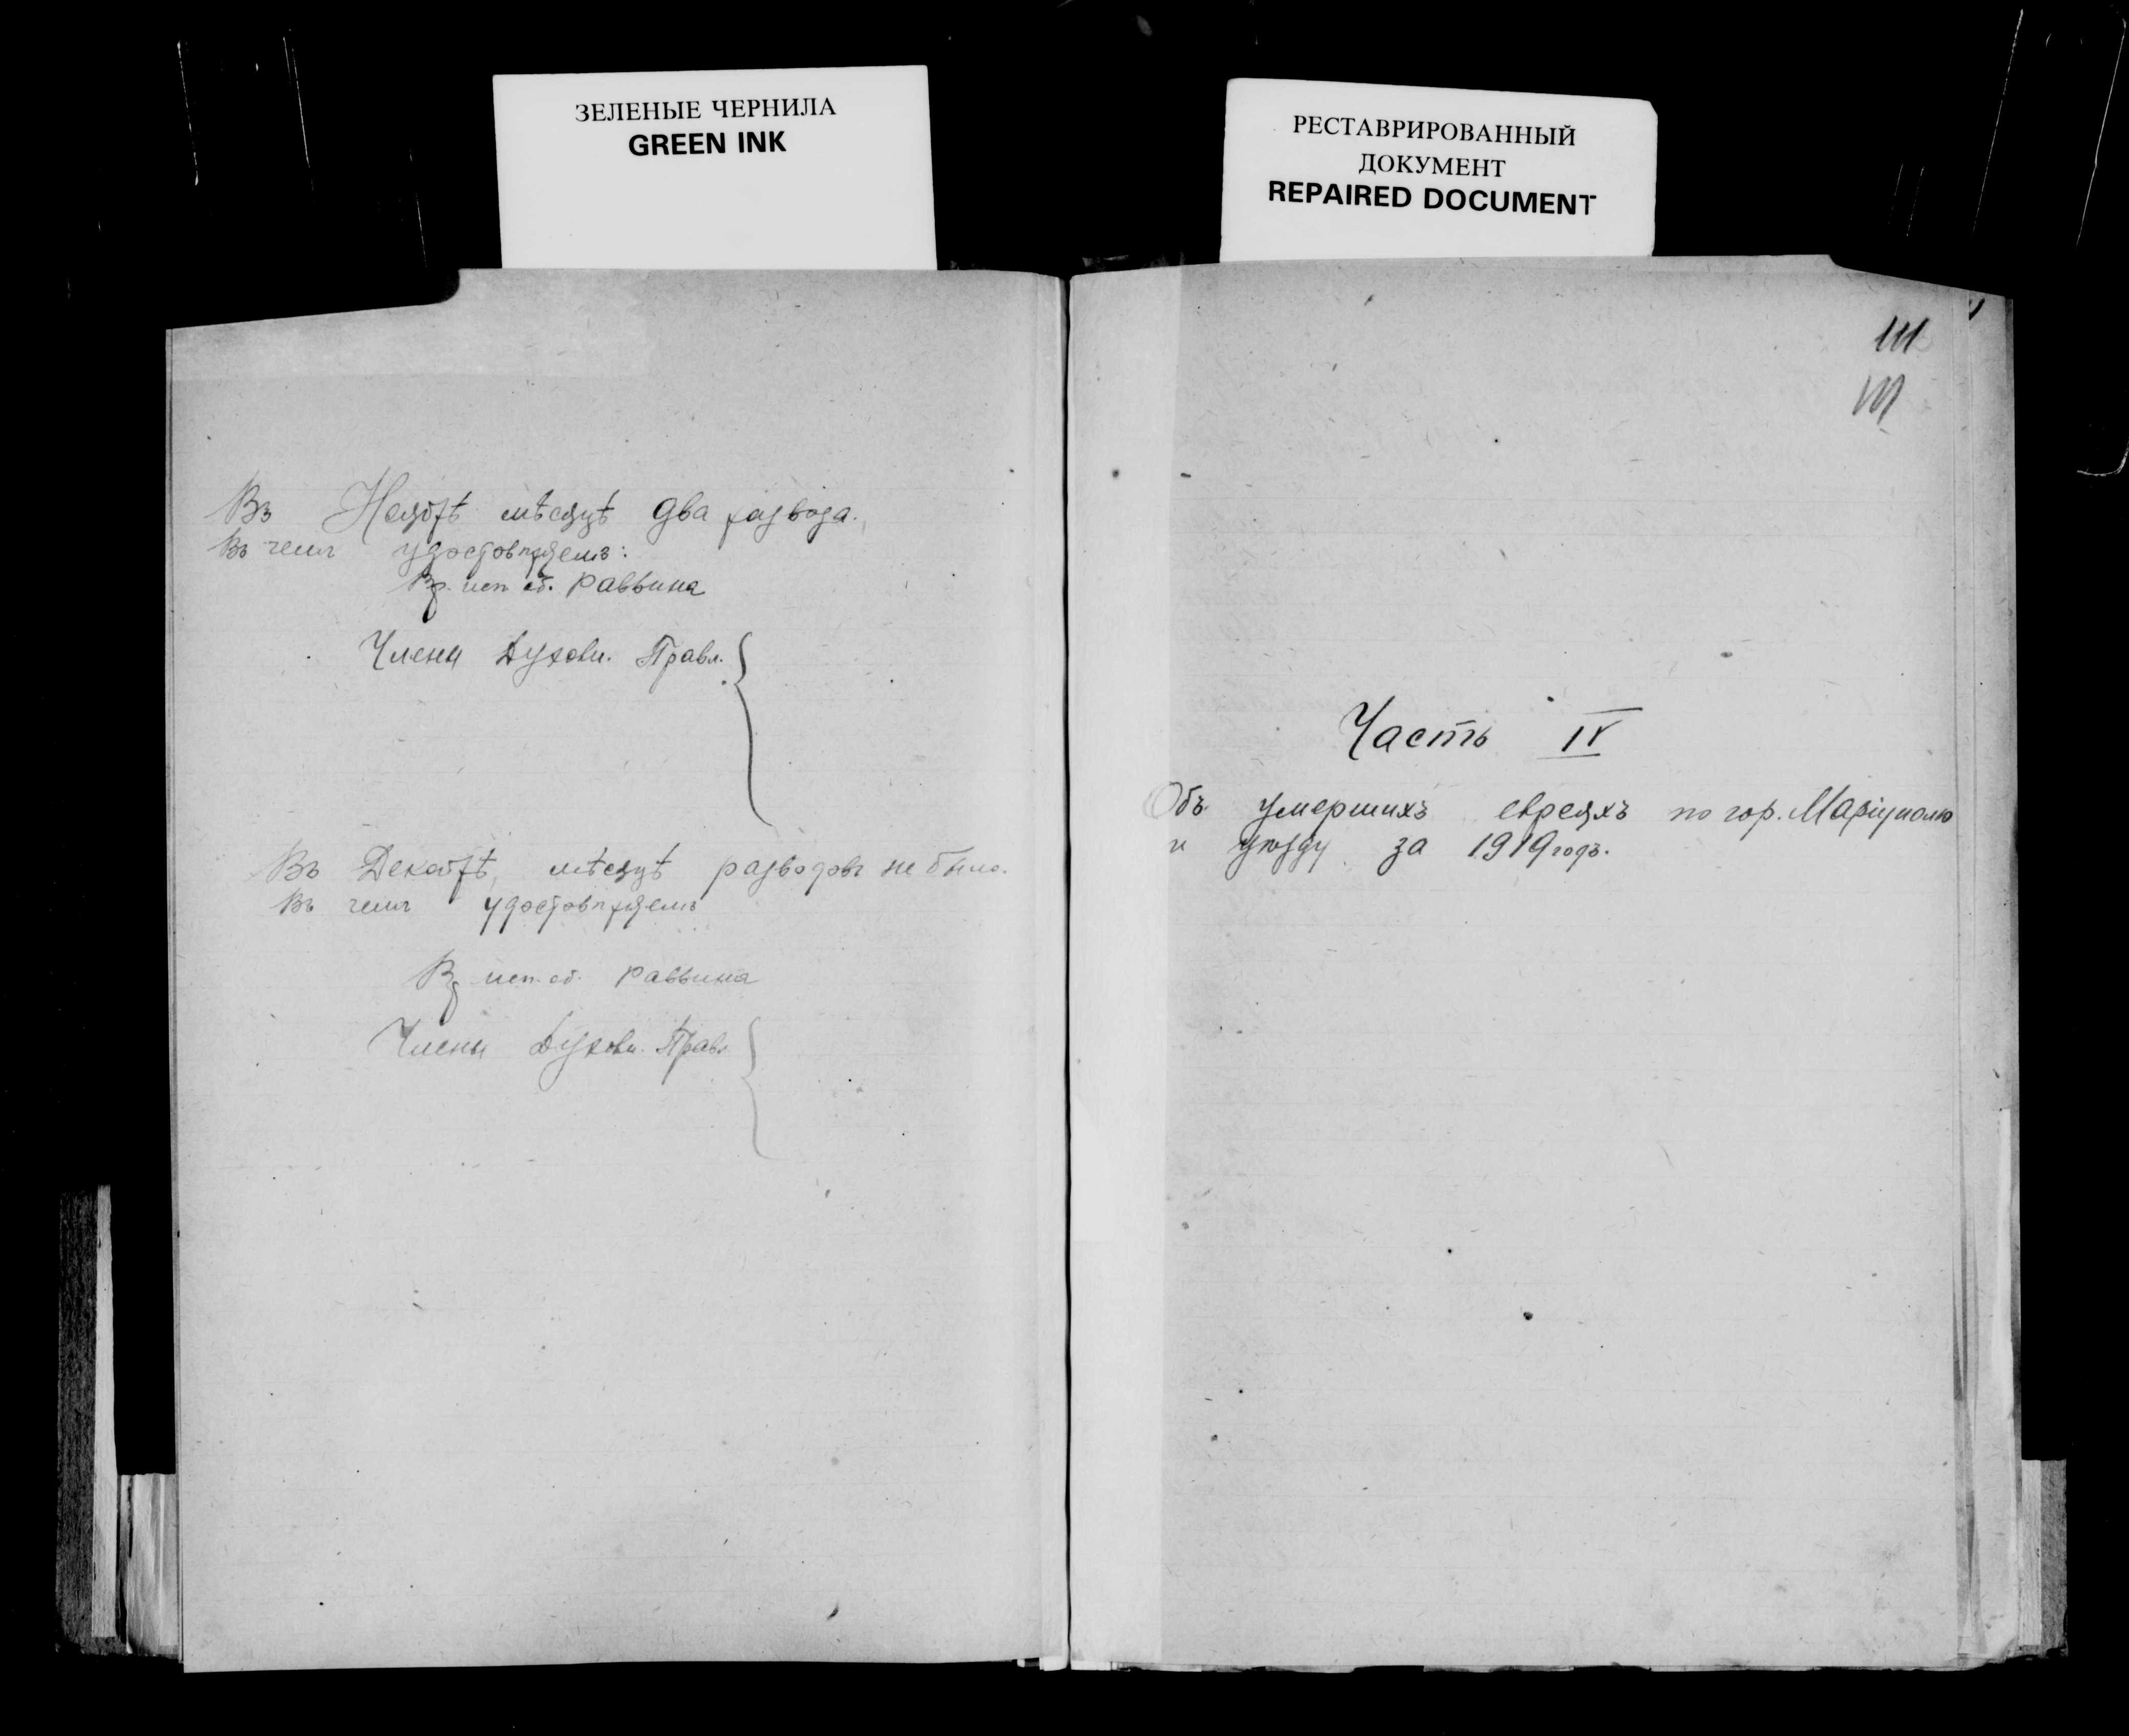 ЗЕЛЕНЫЕ ЧЕРНИЛА
GREEN INK
РЕСТАВРИРОВАННЫЙ
ДОКУМЕНТ
REPAIRED DOCUMENT
Въ Ноябрѣ мѣсяцѣ два развода.
Въ чемъ удостовѣряемъ:
Вр. исп. об. раввина
Члены Духовн. Правл.
Въ Декабрѣ мѣсяцѣ разводовъ не было.
Въ чемъ удостовѣряемъ
Вр исп. об. раввина
Члены Духовн. Правл
111
111
Часть IV
Объ умершихъ евреяхъ по гор. Маріуполю
и уѣзду за 1919 годъ.